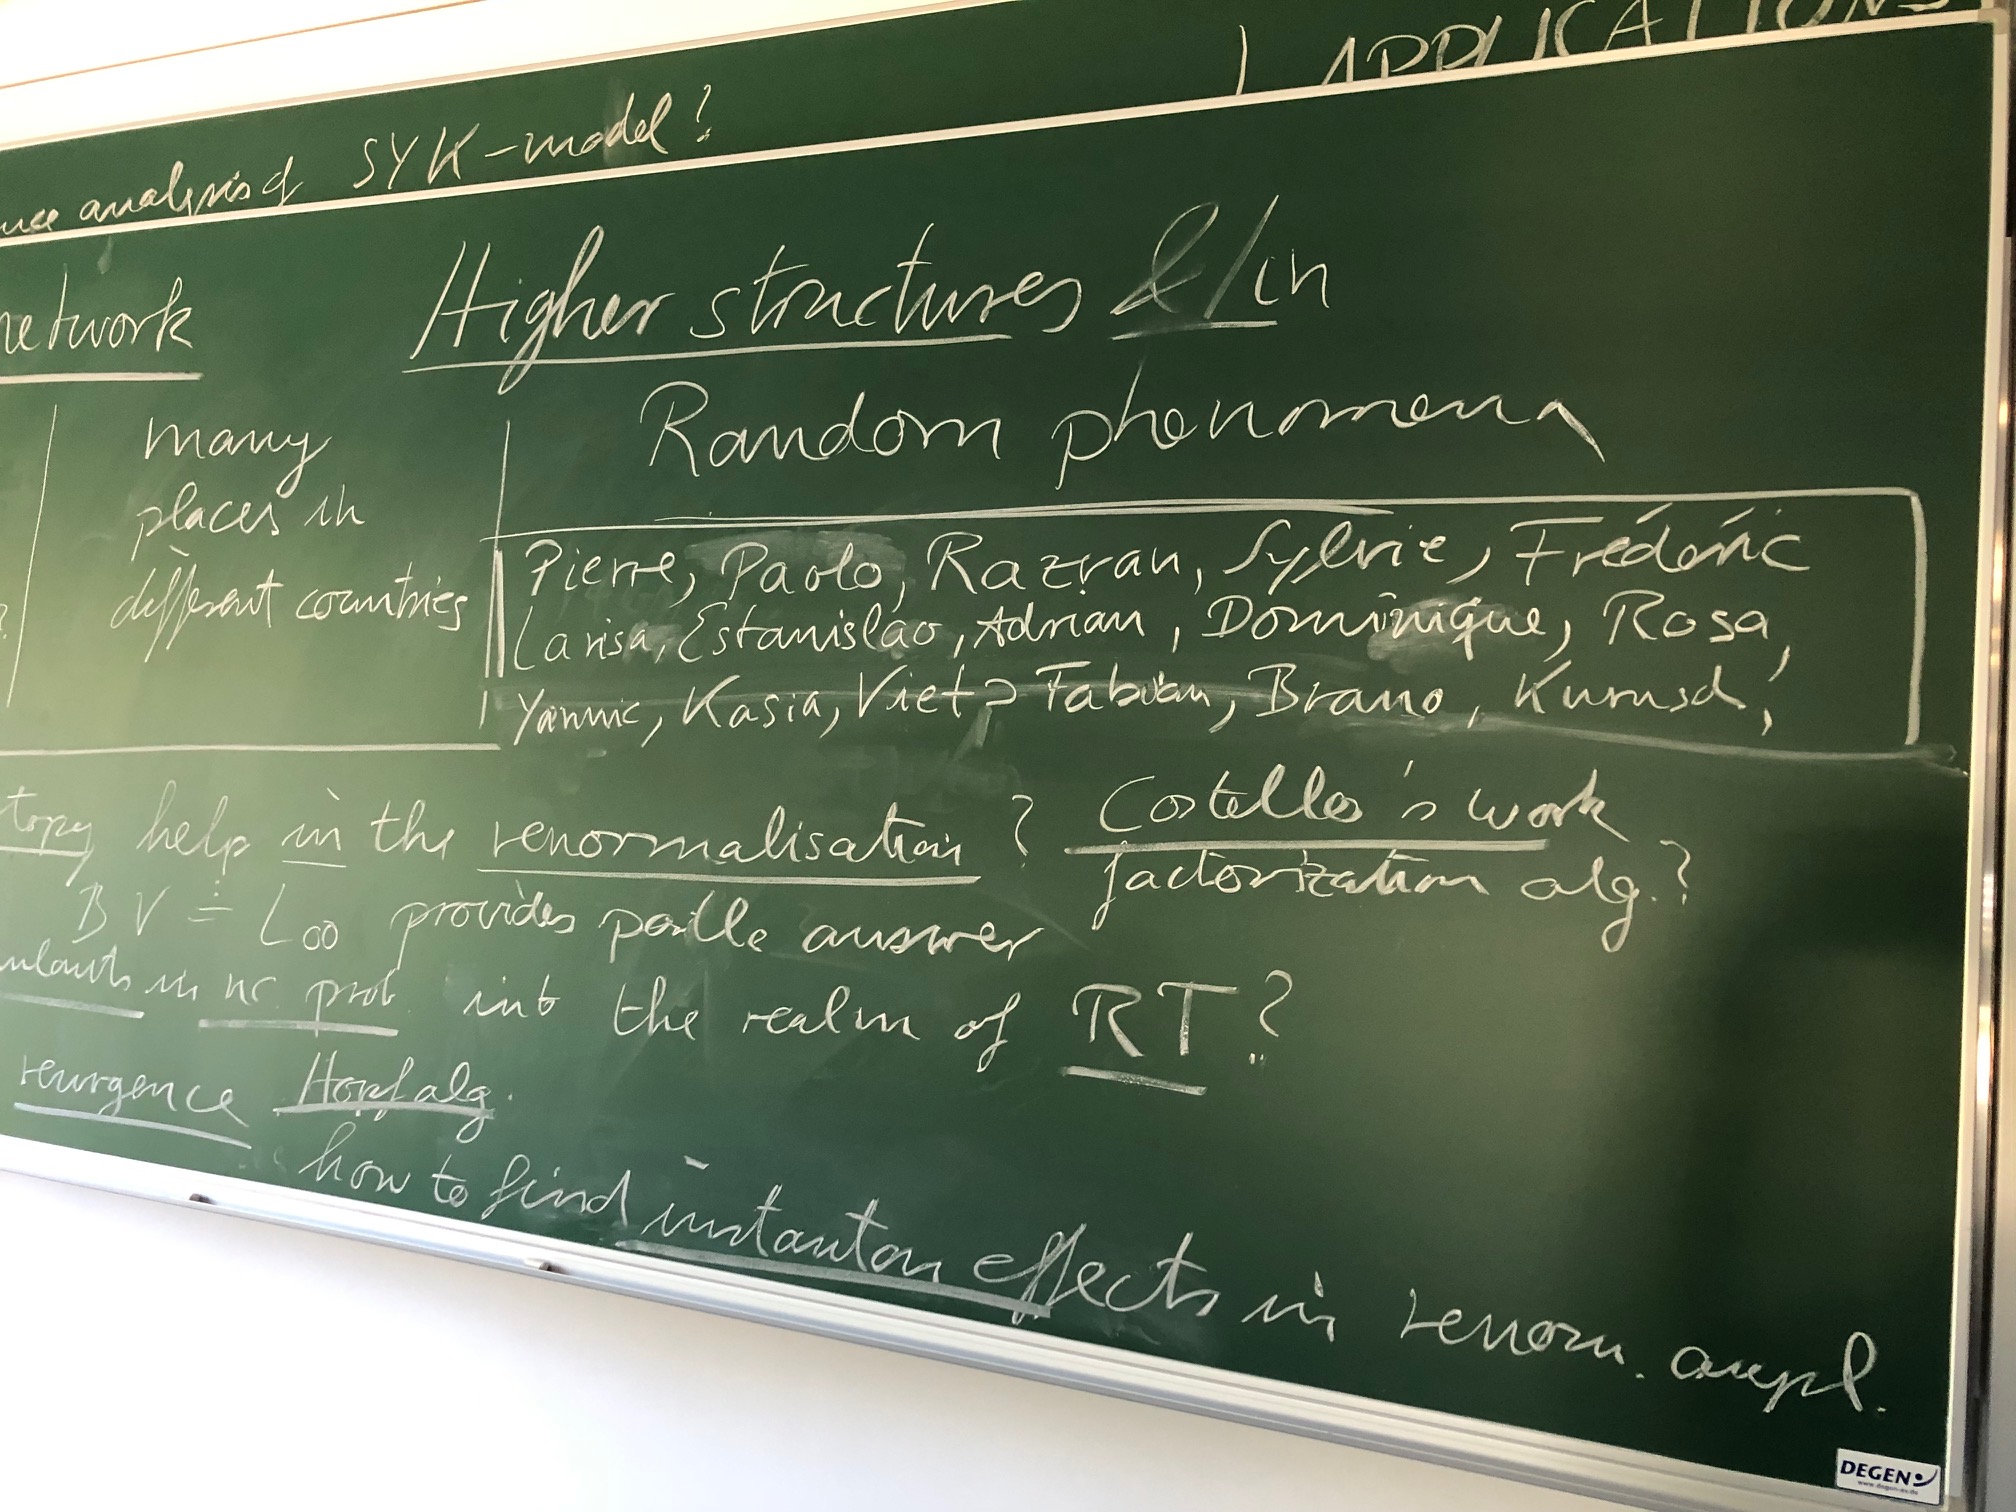 APPLICATIONS
analysis of SYK-model?
network
Higher structures &/in
Random phenomena
many
places in
different countries
Pierre, Paolo, Razvan, Sylvie, Frédéric
Larisa, Estanislao, Adrian, Dominique, Rosa,
Yannic, Kasia, Viet, Fabian, Bruno, Kurusch,
help in the renormalisation?
Costello's work
factorization alg.?
BV ≐ L∞ provides answer
in nc. prob. into the realm of RT?
resurgence Hopf alg.
how to find instanton effects in renorm. ampl.
DEGEN